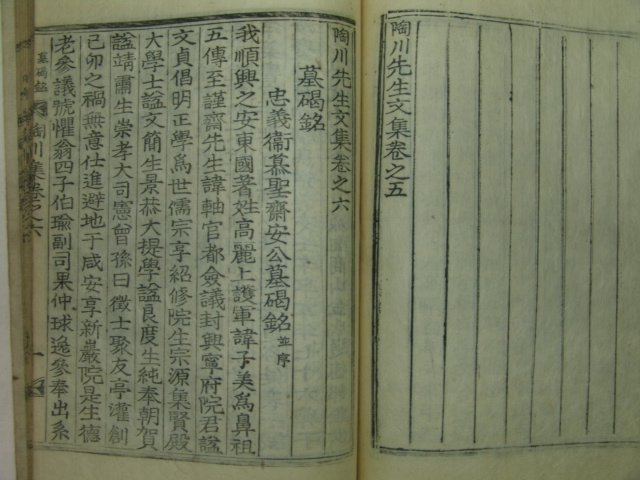 陶川先生文集卷之五
陶川先生文集卷之六
墓碣銘
忠義衛慕聖齋安公墓碣銘 並序
我順興之安東國著姓高麗上護軍諱子美爲鼻祖
五傳至謹齋先生諱軸官都僉議封興寧府院君諡
文貞倡明正學爲世儒宗享紹修院生宗源集賢殿
大學士諡文簡生景恭大提學諡良度生純奉朝賀
諡靖肅生崇孝大司憲曾孫曰徵士聚友亭灌創
己卯之禍無意仕進避地于咸安享新巖院是生德
老參議號懼翁四子伯瑜副司果仲球逸參奉出系
墓碣銘
陶川集卷之六
一